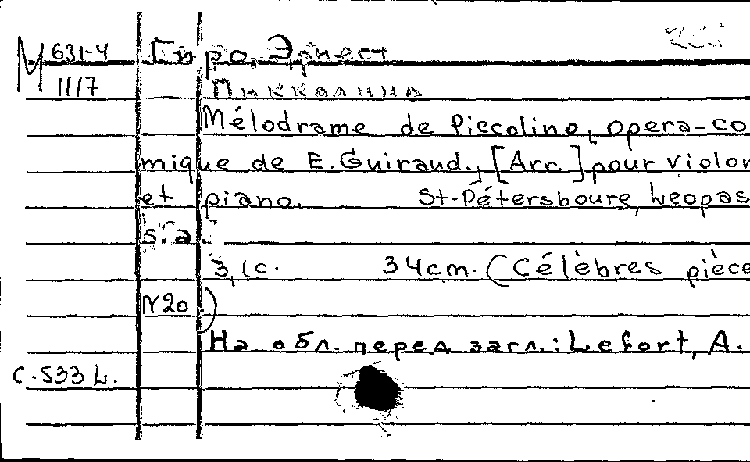 М 631-4 Гиро, Эрнест
1117 Пикколино
Mélodrame de Piccolino, opera-co
mique de E. Guiraud., [Arr.] pour violon
et piano. St-Pétersbourg, Leopas,
s.a.
3,1с. 34cm. (Célèbres pièce
N20)
На обл. перед загл.: Lefort, A.
C.533 L.